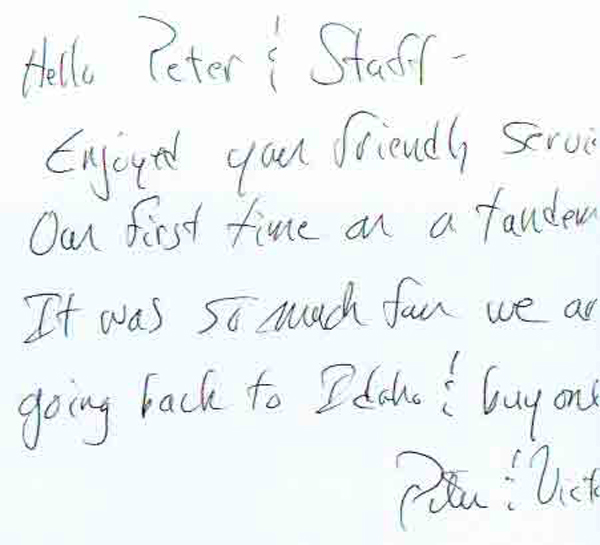 Hello Peter & Staff -
Enjoyed your friendly servi
Our first time on a tandem
It was so much fun we ar
going back to Idaho & buy one
Peter & Victo